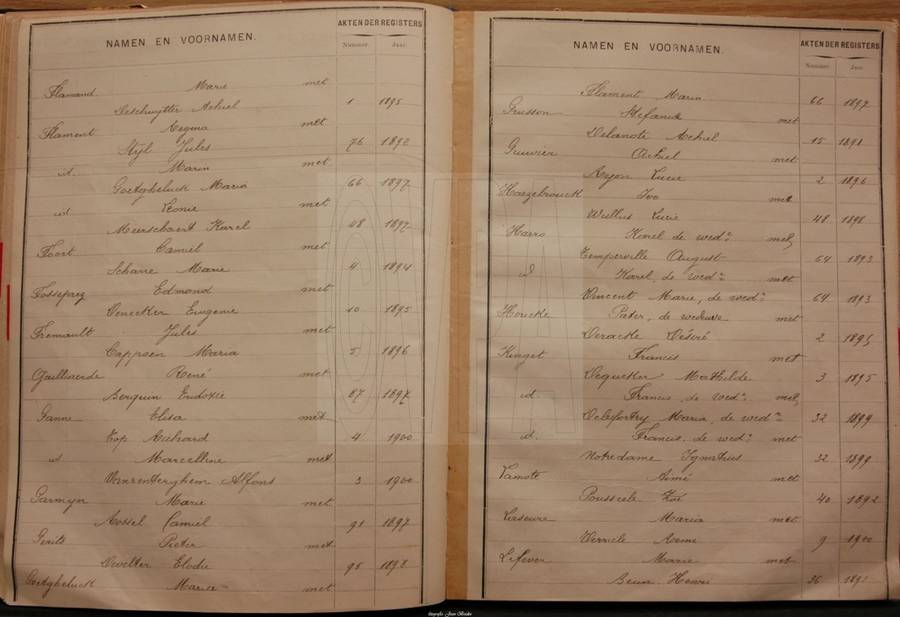 NAMEN EN VOORNAMEN.
AKTEN DER REGISTERS
Nummer. Jaar.
Flamand Marie met
Deschuytter Achiel 1 1895
Flament Regina met
Stijl Jules 76 1892
id Marin met
Goetgheluck Maria 66 1897
id Leonie met
Meerschaert Karel 48 1897
Foort Camiel met
Scharre Marie 4 1894
Fosseprez Edmond met
Denecker Eugenie 10 1895
Fremault Jules met
Cappoen Maria 5 1896
Gailliaerde René met
Berquin Eudoxie 67 1897
Ganne Elisa met
Top Richard 4 1900
id Marcelline met
Vanrenterghem Alfons 3 1900
Garmyn Marie met
Rossel Camiel 91 1897
Gerits Pieter met
Dewetter Elodie 95 1898
Goetgheluck Maria met
NAMEN EN VOORNAMEN.
AKTEN DER REGISTERS
Nummer. Jaar.
Flament Marin 66 1897
Grusson Stefanie met
Delanote Achiel 15 1891
Gruwier Achiel met
Ryon Lucie 2 1896
Haezebrouck Ivo met
Wullus Lucie 48 1898
Harro Karel de wedr met
Temperville August 64 1893
id Karel, de wedr met
Vincent Marie, de wedr 64 1893
Houcke Pieter, de weduwe met
Deraedte Désiré 2 1895
Kinget Francis met
Dequeker Mathilde 3 1895
id Francis, de wedr met
Delefortry Maria, de wedr 32 1899
id. Francis, de wedr met
Notredame Ignatius 32 1899
Lamote Aimé met
Pousseele Zoé 40 1892
Leseure Maria met
Verriele Remi 9 1900
Lefever Marie met
Beun Henri 36 1891
fotografie Joan Bricke